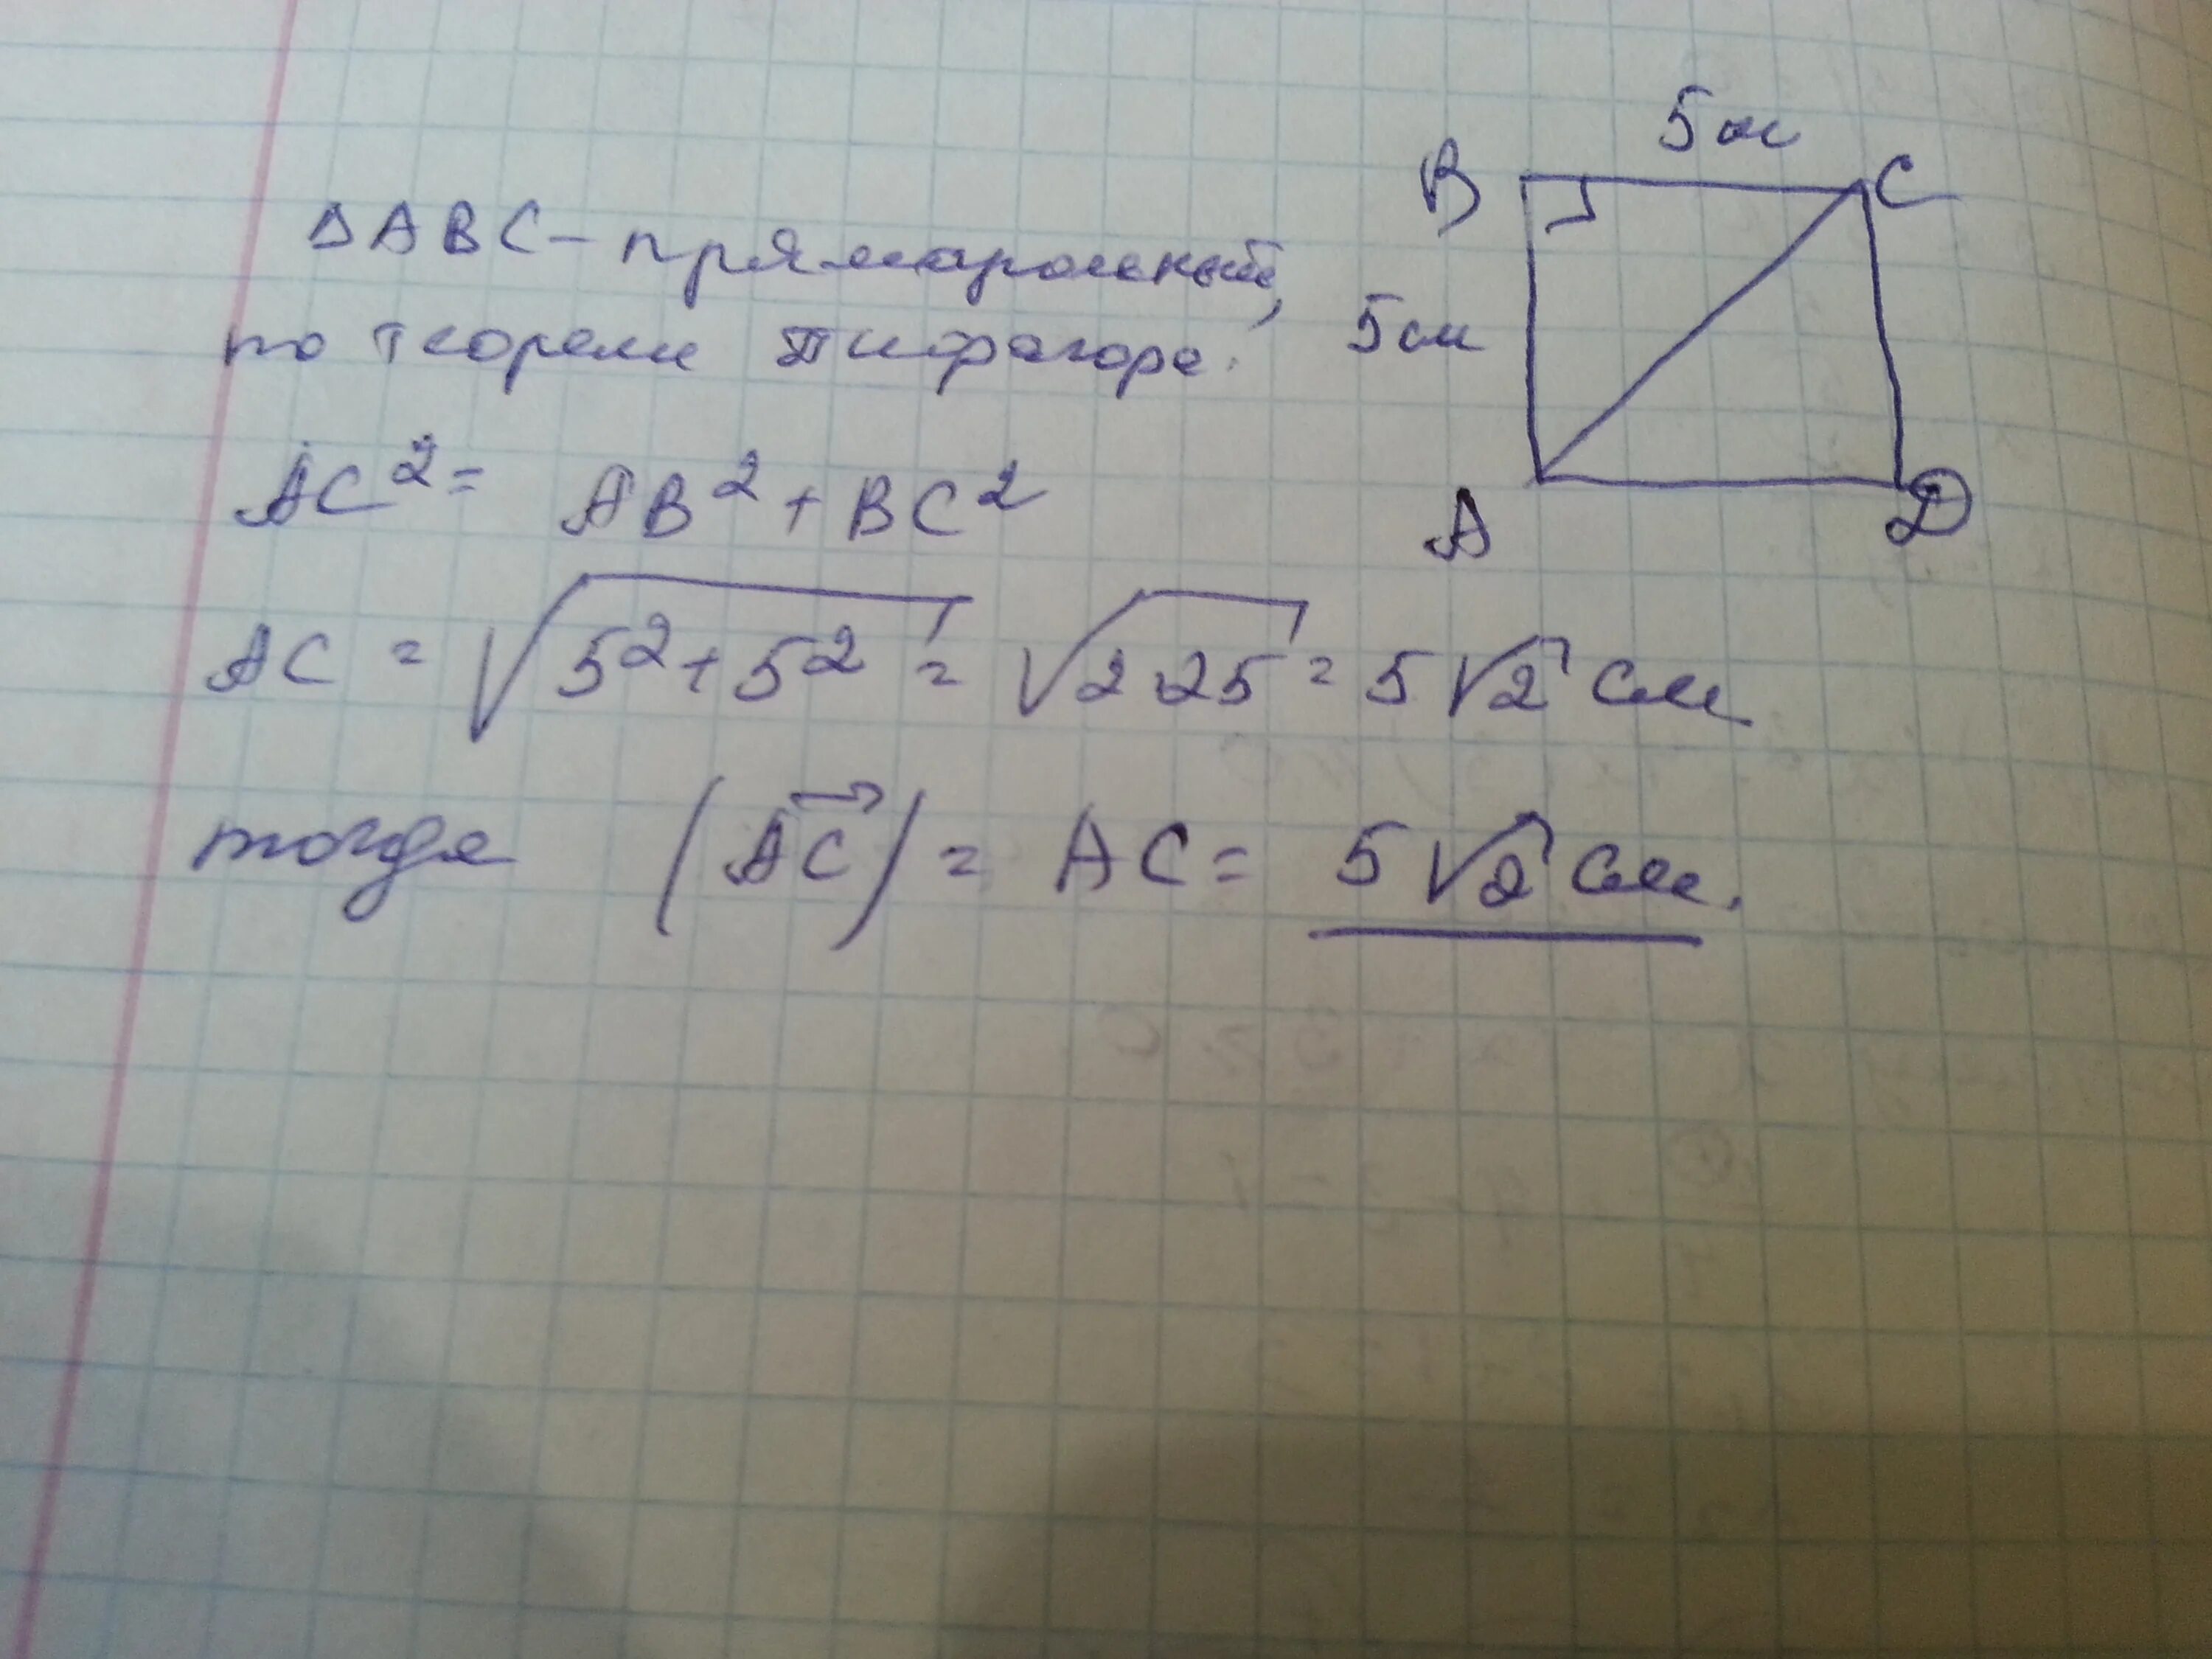 5 см
B C
∆ABC – прямоугольный,
по теореме Пифагора: 5 см
AC² = AB² + BC²
A D
AC = √5² + 5² = √2·25 = 5√2 см
тогда |AC| = AC = 5√2 см.